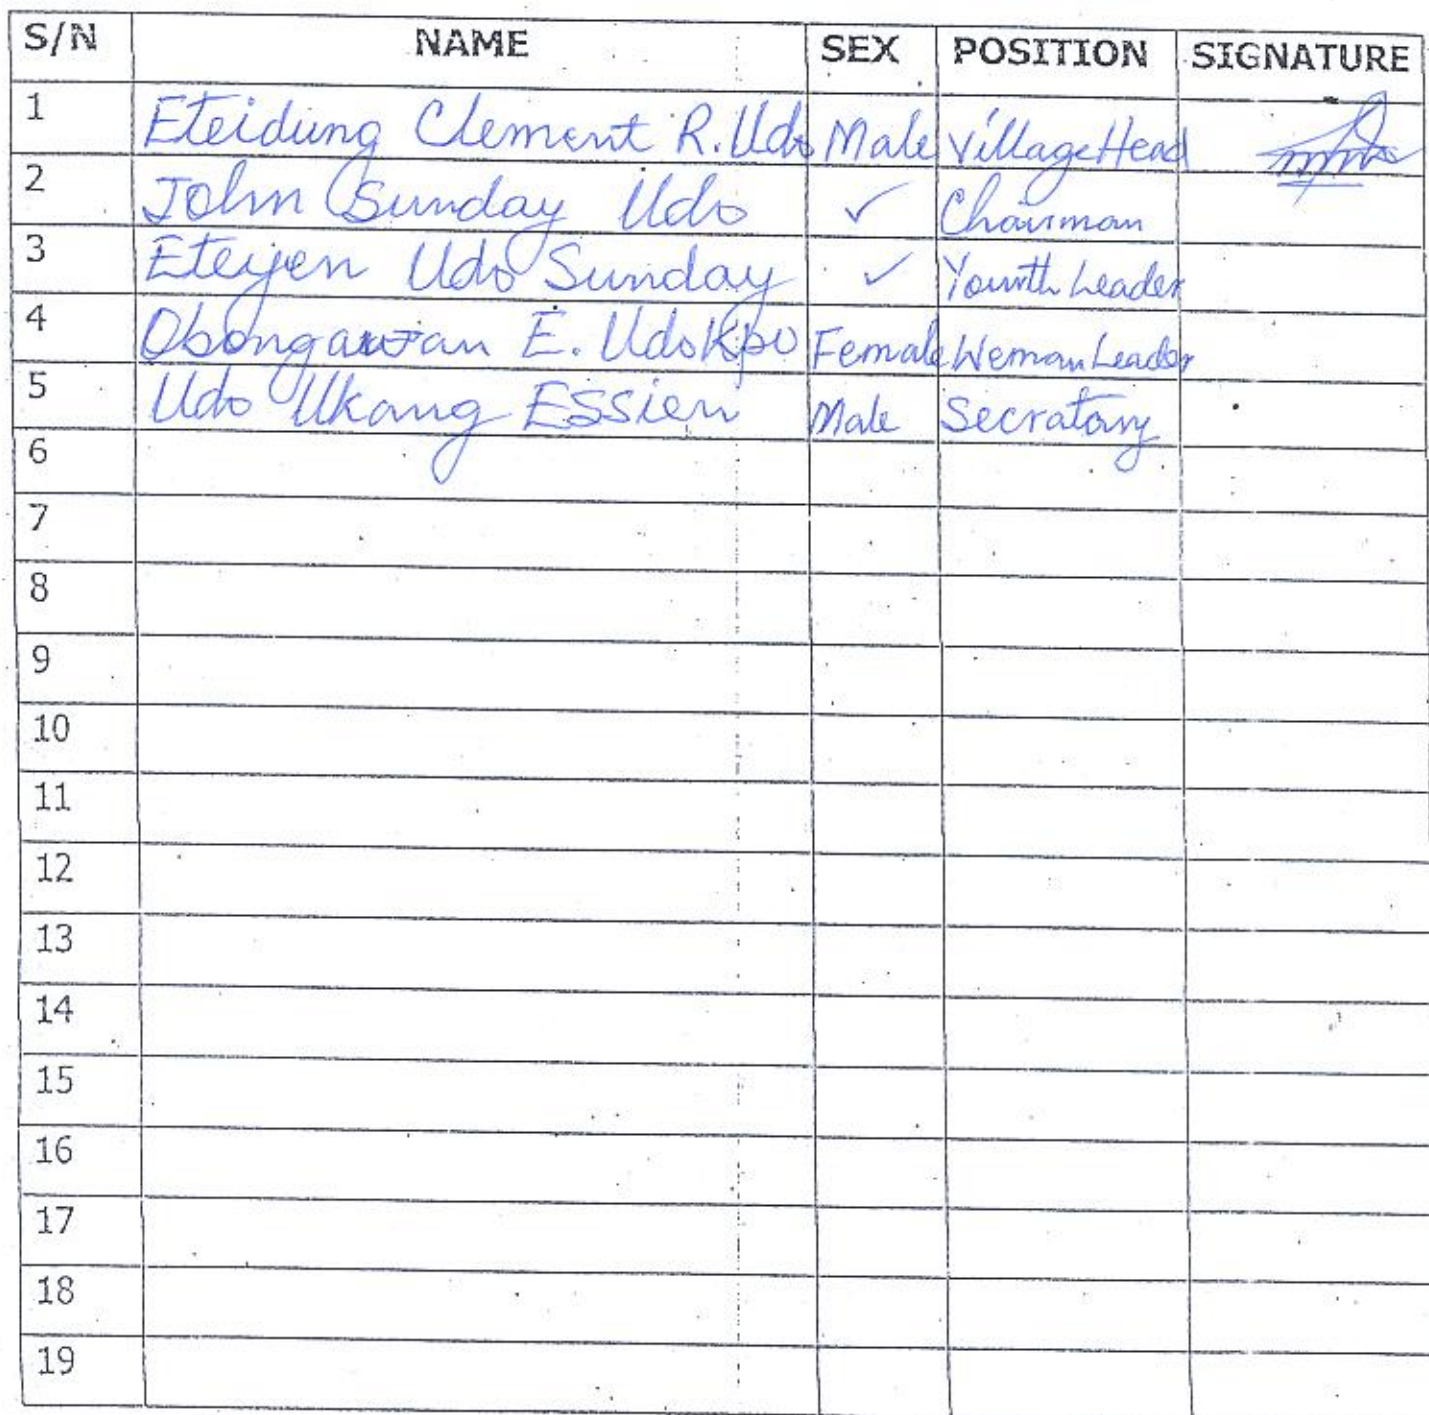 S/N NAME SEX POSITION SIGNATURE
1 Eteidung Clement R. Udo Male Village Head
2 John Sunday Udo ✓ Chairman
3 Eteyen Udo Sunday ✓ Yourth Leader
4 Obongawan E. Udokpo Female Weman Leader
5 Udo Ukang Essien Male Secratary
6
7
8
9
10
11
12
13
14
15
16
17
18
19